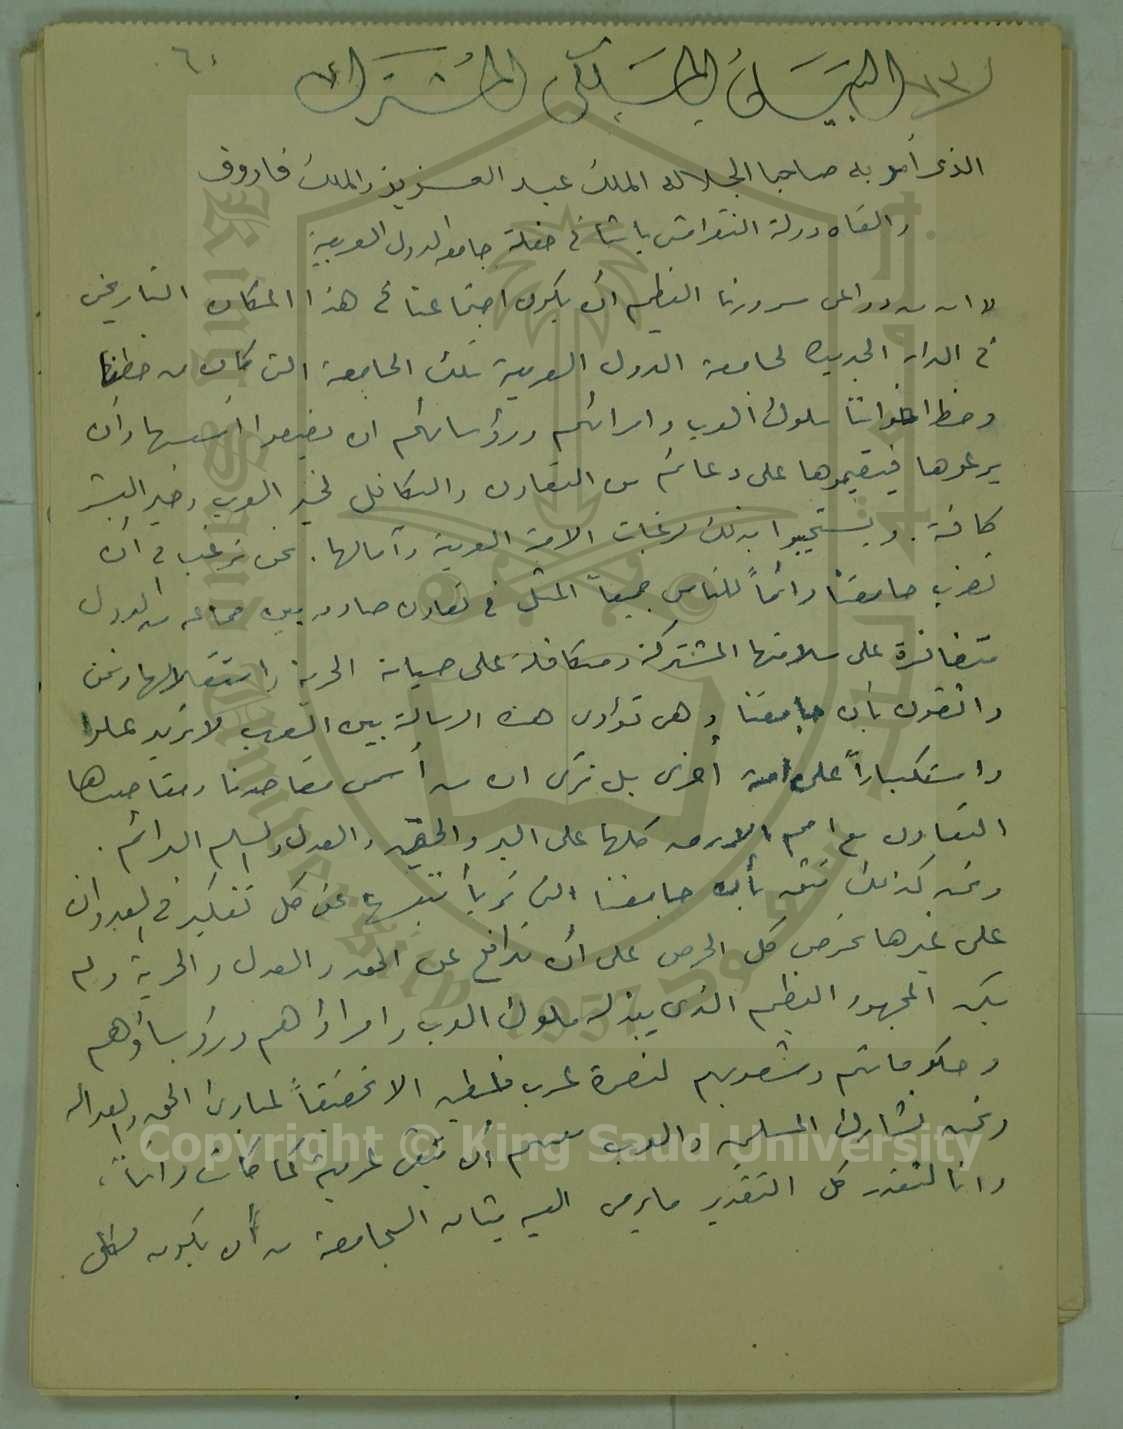 ٦٠
(٧٣) البَيَانُ المَلَكِي المُشتَرك
الذى أمر به صاحبا الجلاله الملك عبد العزيز والملك فاروق
والقاه دولة النقراشى باشا فى حفلة جامعة الدول العربية
ان من دواعى سرورنا العظيم ان يكون اجتماعنا فى هذا المكان التاريخى
فى الدار الجديده لجامعة الدول العربية تلك الجامعة التى كان من حظنا
وحظ اخواننا ملوك العرب وامرائهم ورؤسائهم ان يضعوا أسسها وان
يرعوها فيقيموها على دعائم من التعاون والتكافل لخير العرب وخير البشر
كافة. ويستجيبوا بذلك لرغبات الامة العربية وآمالها. نحن نرغب فى ان
تضرب جامعتنا دائماً للناس جميعاً المثل فى تعاون صادق بين جماعه من الدول
متضافرة على سلامتها المشتركة ومتكافلة على صيانة الحرية واستقلالها ونحن
واثقون بأن جامعتنا وهى تؤدى هذه الرسالة بين العرب لا تريد علوا
واستكباراً على امة أخرى بل نرى ان من أسمى مقاصدنا ومقاصدها
التعاون مع امم الارض كلها على البر والحق والعدل والسلم الدائم.
ونحن كذلك نثق بأن جامعتنا التى نربأ بنفسها عن كل تفكير فى العدوان
على غيرها تحرص كل الحرص على أن تدافع عن الحق والعدل والحرية ولم
يكن المجهود العظيم الذى يبذله ملوك العرب وامراؤهم ورؤساؤهم
وحكوماتهم وشعوبهم لنصرة عرب فلسطين الا تحقيقاً لمبادئ الحق والعداله
ونحن نشارك المسلمين والعرب أن تبقى عربية كما كانت دائماً،
وانا لنقدر كل التقدير ما يرمى اليه ميثاق الجامعة من أن يكون لكل
Copyright © King Saud University
King Saud University
1957
جامعة الملك سعود